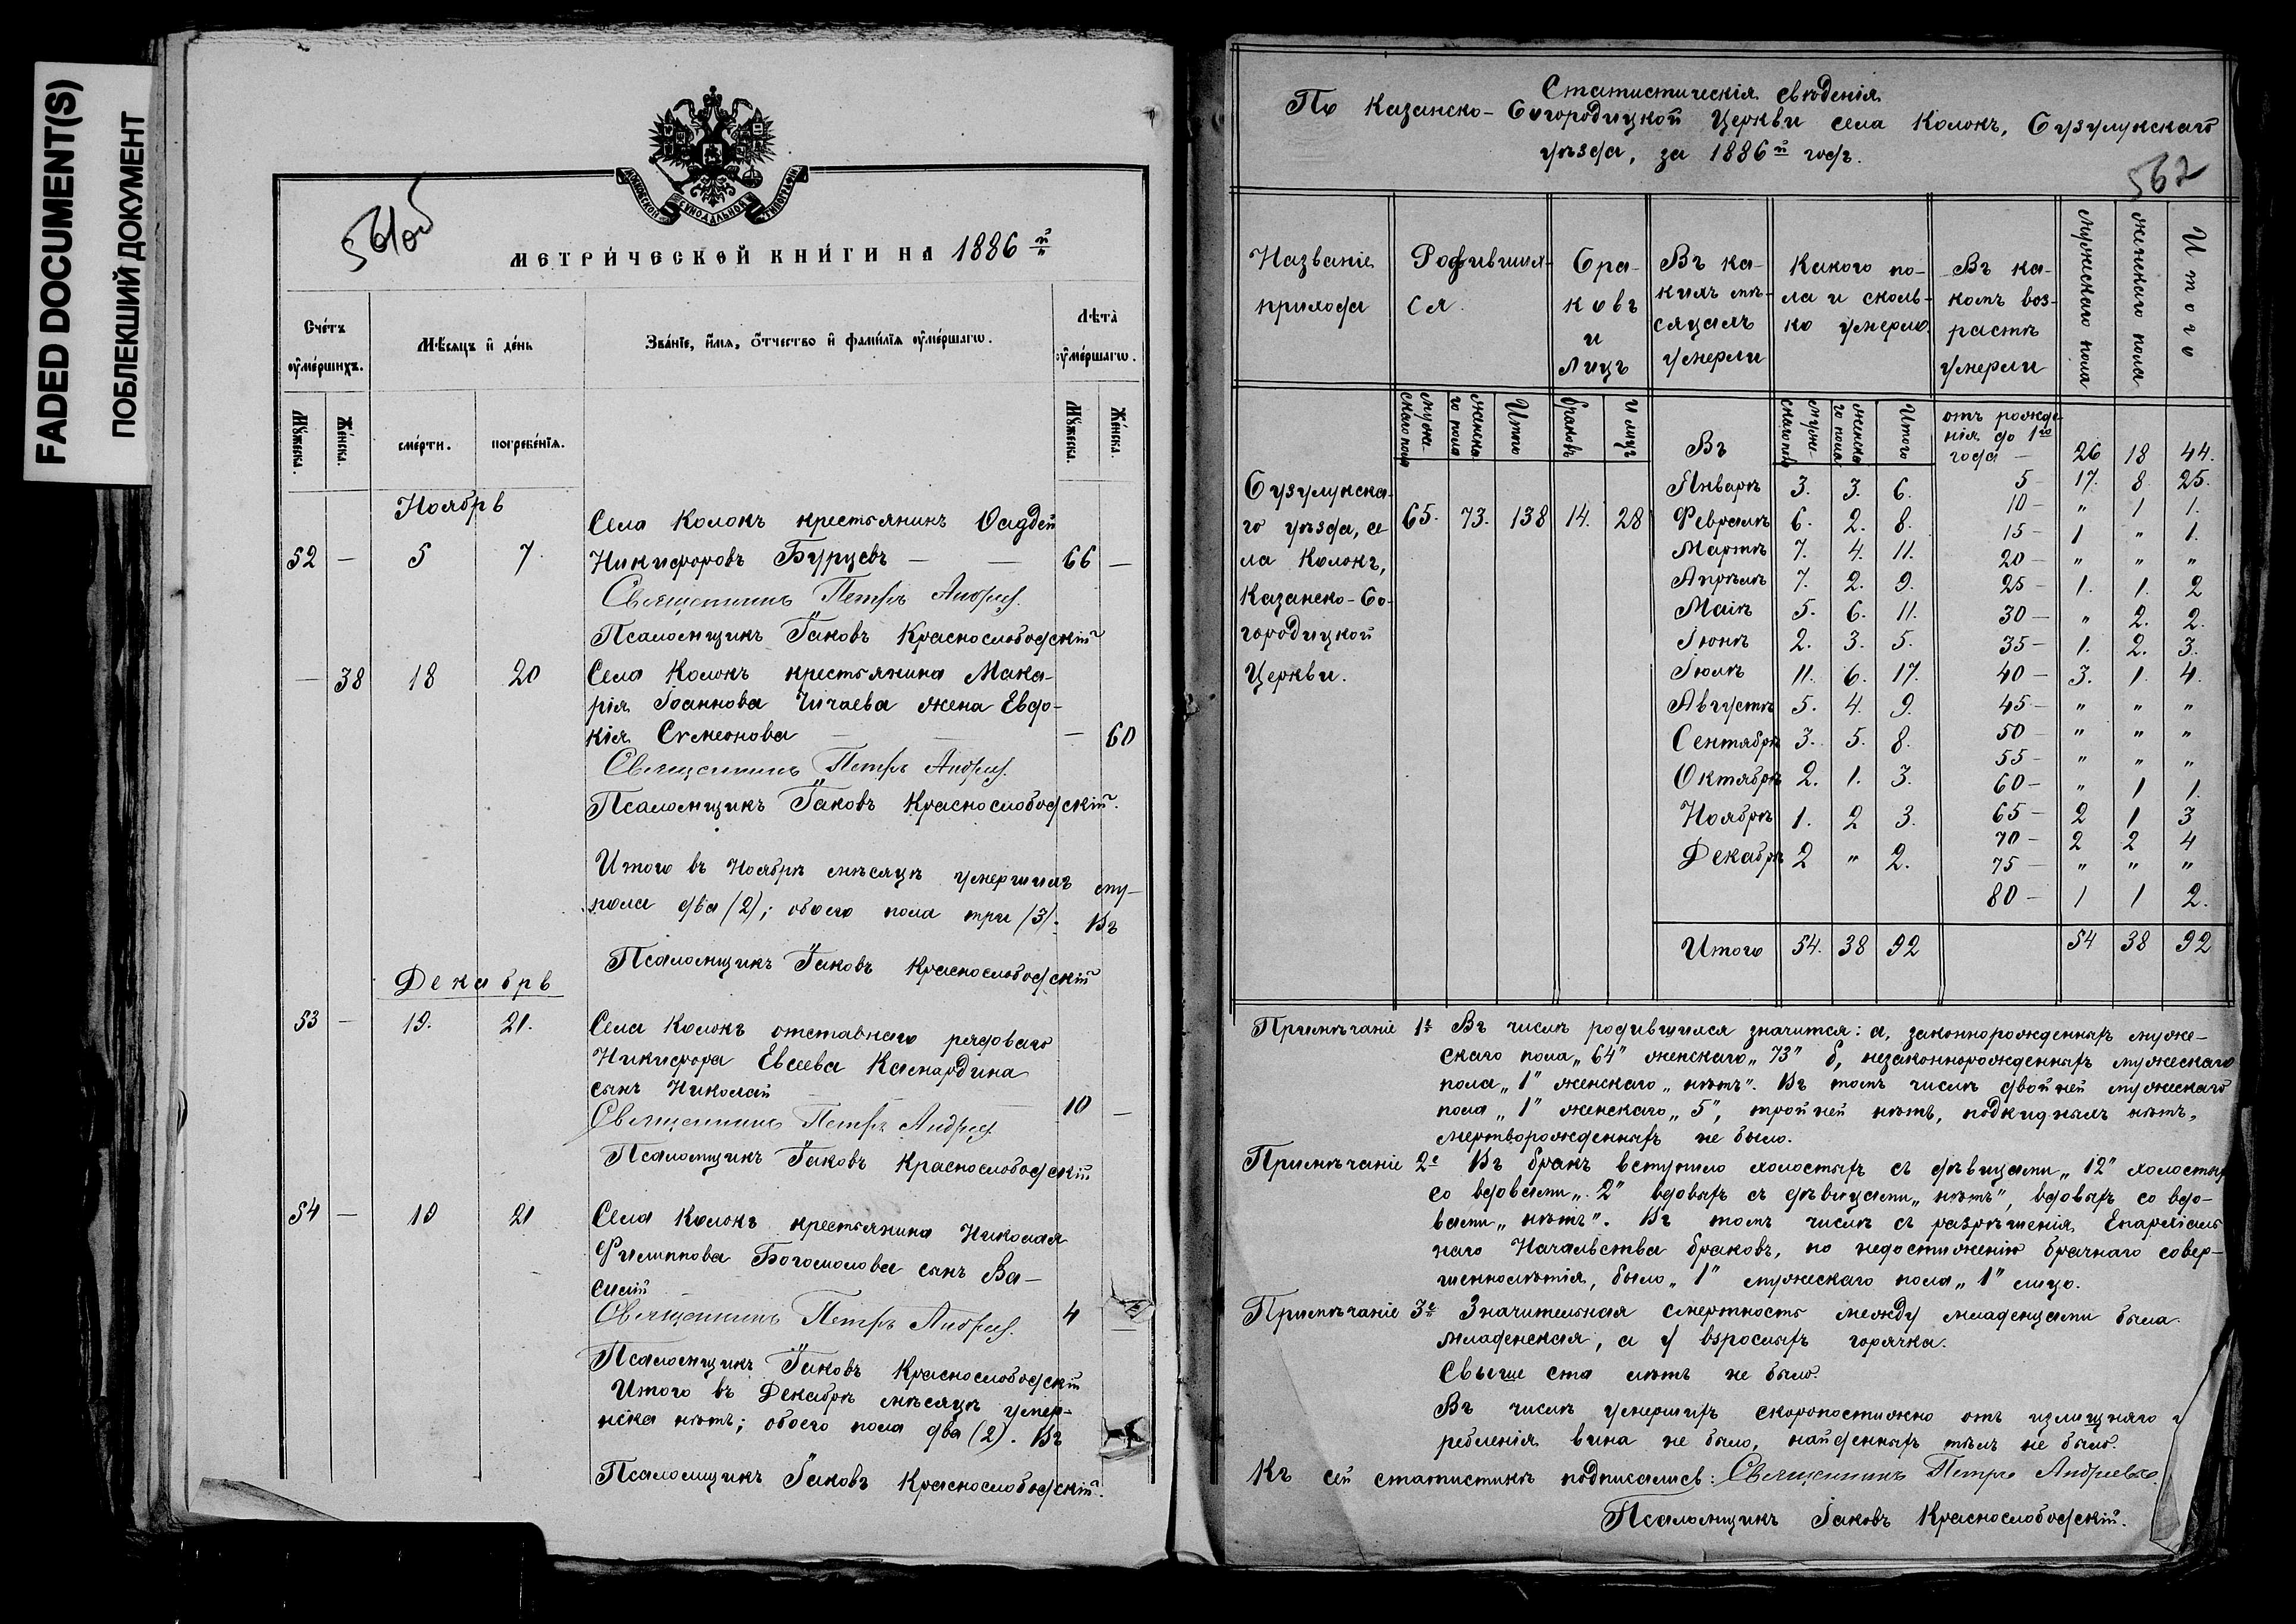 FADED DOCUMENT(S)
ПОБЛЕКШИЙ ДОКУМЕНТ
МОСКОВСКОЙ СѴНОДАЛЬНОЙ ТИПОГРАФІИ
561об
МЕТРИЧЕСКОЙ КНИГИ НА 1886й
Счетъ умершихъ.
Мѣсяцъ и день
Званіе, имя, отчество и фамилія умершагω.
Лѣта умершагω.
Мужеска.
Женска.
смерти.
погребенія.
Мужеска.
Женска.
Ноябрь
Села Колокъ крестьянинъ Фаддей
52 — 5 7. Никифоровъ Бурцевъ — — 66 —
Священникъ Петръ Андреев
Псаломщикъ Іаковъ Краснослободскій
— 38 18 20 Села Колокъ крестьянина Мака-
рія Іоаннова Чичаева жена Евдо-
кія Симеонова — — 60
Священникъ Петръ Андреев
Псаломщикъ Іаковъ Краснослободскій.
Итого въ Ноябрѣ мѣсяцѣ умершихъ му-
пола два (2); обоего пола три (3). Въ
Псаломщикъ Іаковъ Краснослободскій
Декабрь
53 — 19. 21. Села Колокъ отставнаго рядоваго
Никифора Евсеева Камардина
сынъ Николай 10 —
Священникъ Петръ Андреев
Псаломщикъ Іаковъ Краснослободскій
54 — 19 21 Села Колокъ крестьянина Николая
Филиппова Богомолова сынъ Ва-
силій 4 —
Священникъ Петръ Андреев
Псаломщикъ Іаковъ Краснослободскій
Итого въ Декабрѣ мѣсяцѣ умер-
нска нѣтъ; обоего пола два (2). Въ
Псаломщикъ Іаковъ Краснослободскій.
Статистическія свѣденія
По Казанско-Богородицкой Церкви села Колокъ, Бузулукскаго
уѣзда, за 1886й годъ.
562
Названіе прихода
Родившихся
Браковъ и лицъ
Въ какихъ мѣсяцахъ умерли
Какого пола и сколько умерло
Въ какомъ возрастѣ умерли
мужескаго пола
женскаго пола
Итого
мужескаго пола
женскаго пола
Итого
браковъ
и лицъ
Въ
мужескаго пола
женскаго пола
Итого
отъ рожденія до 1го года — 26 18 44.
Бузулукска-
го уѣзда, се-
ла Колокъ,
Казанско-Бо-
городицкой
Церкви.
65. 73. 138 14. 28
Январѣ 3. 3. 6.
Февралѣ 6. 2. 8.
Мартѣ 7. 4. 11.
Апрѣлѣ 7. 2. 9.
Маіѣ 5. 6. 11.
Іюнѣ 2. 3. 5.
Іюлѣ 11. 6. 17.
Августѣ 5. 4. 9.
Сентябрѣ 3. 5. 8.
Октябрѣ 2. 1. 3.
Ноябрѣ 1. 2 3.
Декабрѣ 2 " 2.
5 — 17. 8. 25.
10 — " 1 1.
15 — 1 " 1.
20 — " " "
25 — 1. 1. 2
30 — " 2. 2.
35 — 1. 2. 3.
40 — 3. 1. 4.
45 — " " "
50 — " " "
55 — " " "
60 — " 1 1.
65 — 2 1 3
70 — 2 2 4
75 — " " "
80 — 1 1 2.
Итого 54. 38 92 54 38 92
Примѣчаніе 1е Въ числѣ родившихся значится: а, законнорожденныхъ муже-
скаго пола „64" женскаго „73" б, незаконнорожденныхъ мужескаго
пола „1" женскаго „нѣтъ". Въ томъ числѣ двойней мужескаго
пола „1" женскаго „5", тройней нѣтъ, подкидныхъ нѣтъ,
мертворожденныхъ не было.
Примѣчаніе 2е Въ бракъ вступило холостыхъ съ дѣвицами „12" холостых
со вдовами „2" вдовыхъ съ дѣвицами „нѣтъ", вдовыхъ со вдо-
вами „нѣтъ". Въ томъ числѣ съ разрѣшенія Епархіаль
наго Начальства браковъ, по недостиженію брачнаго совер-
шеннолѣтія, было „1" мужескаго пола „1" лицо.
Примѣчаніе 3е Значительная смертность между младенцами была
младенская, а у взрослыхъ горячка.
Свыше ста лѣтъ не было.
Въ числѣ умершихъ скоропостижно отъ излишняго у
ребленія вина не было, найденныхъ тѣлъ не было.
Къ сей статистикѣ подписались: Священникъ Петръ Андреевъ
Псаломщикъ Іаковъ Краснослободскій.